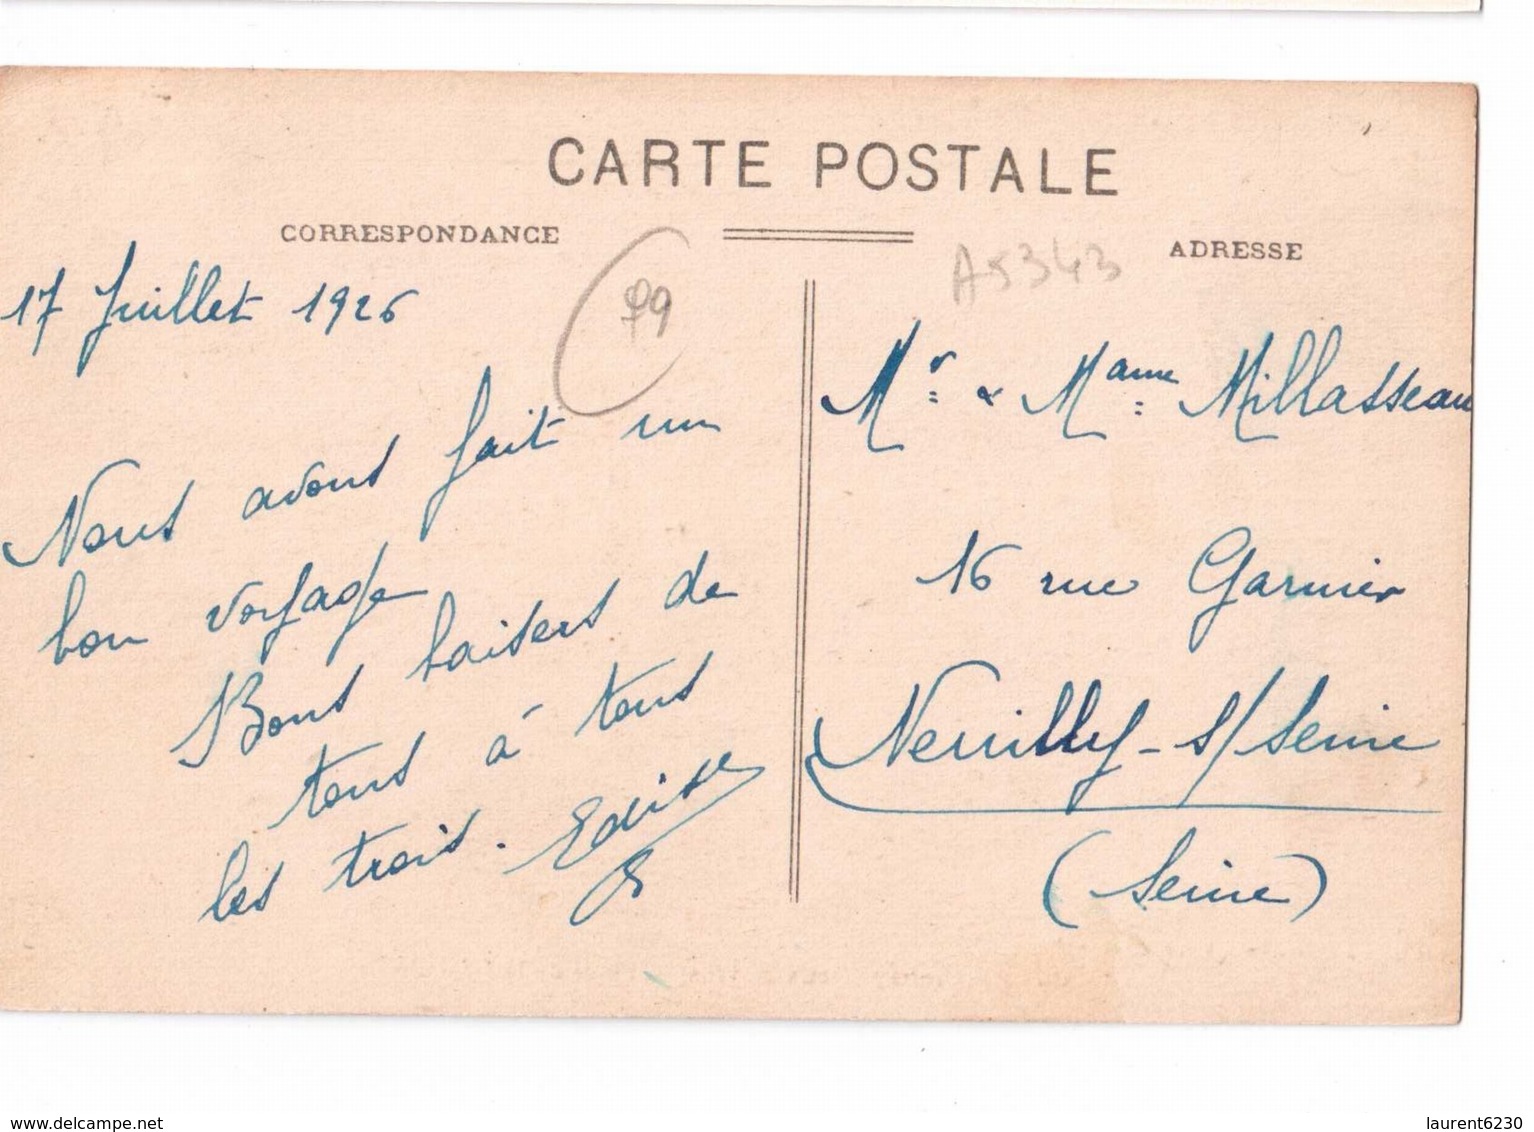 CARTE POSTALE
CORRESPONDANCE
ADRESSE
A5343
79
17 Juillet 1926
Nous avons fait un
bon voyage
Bons baisers de
tous à tous
les trois. Edise
Mr & Mame Millasseau
16 rue Garnier
Neuilly-s/Seine
(Seine)
www.delcampe.net
laurent6230